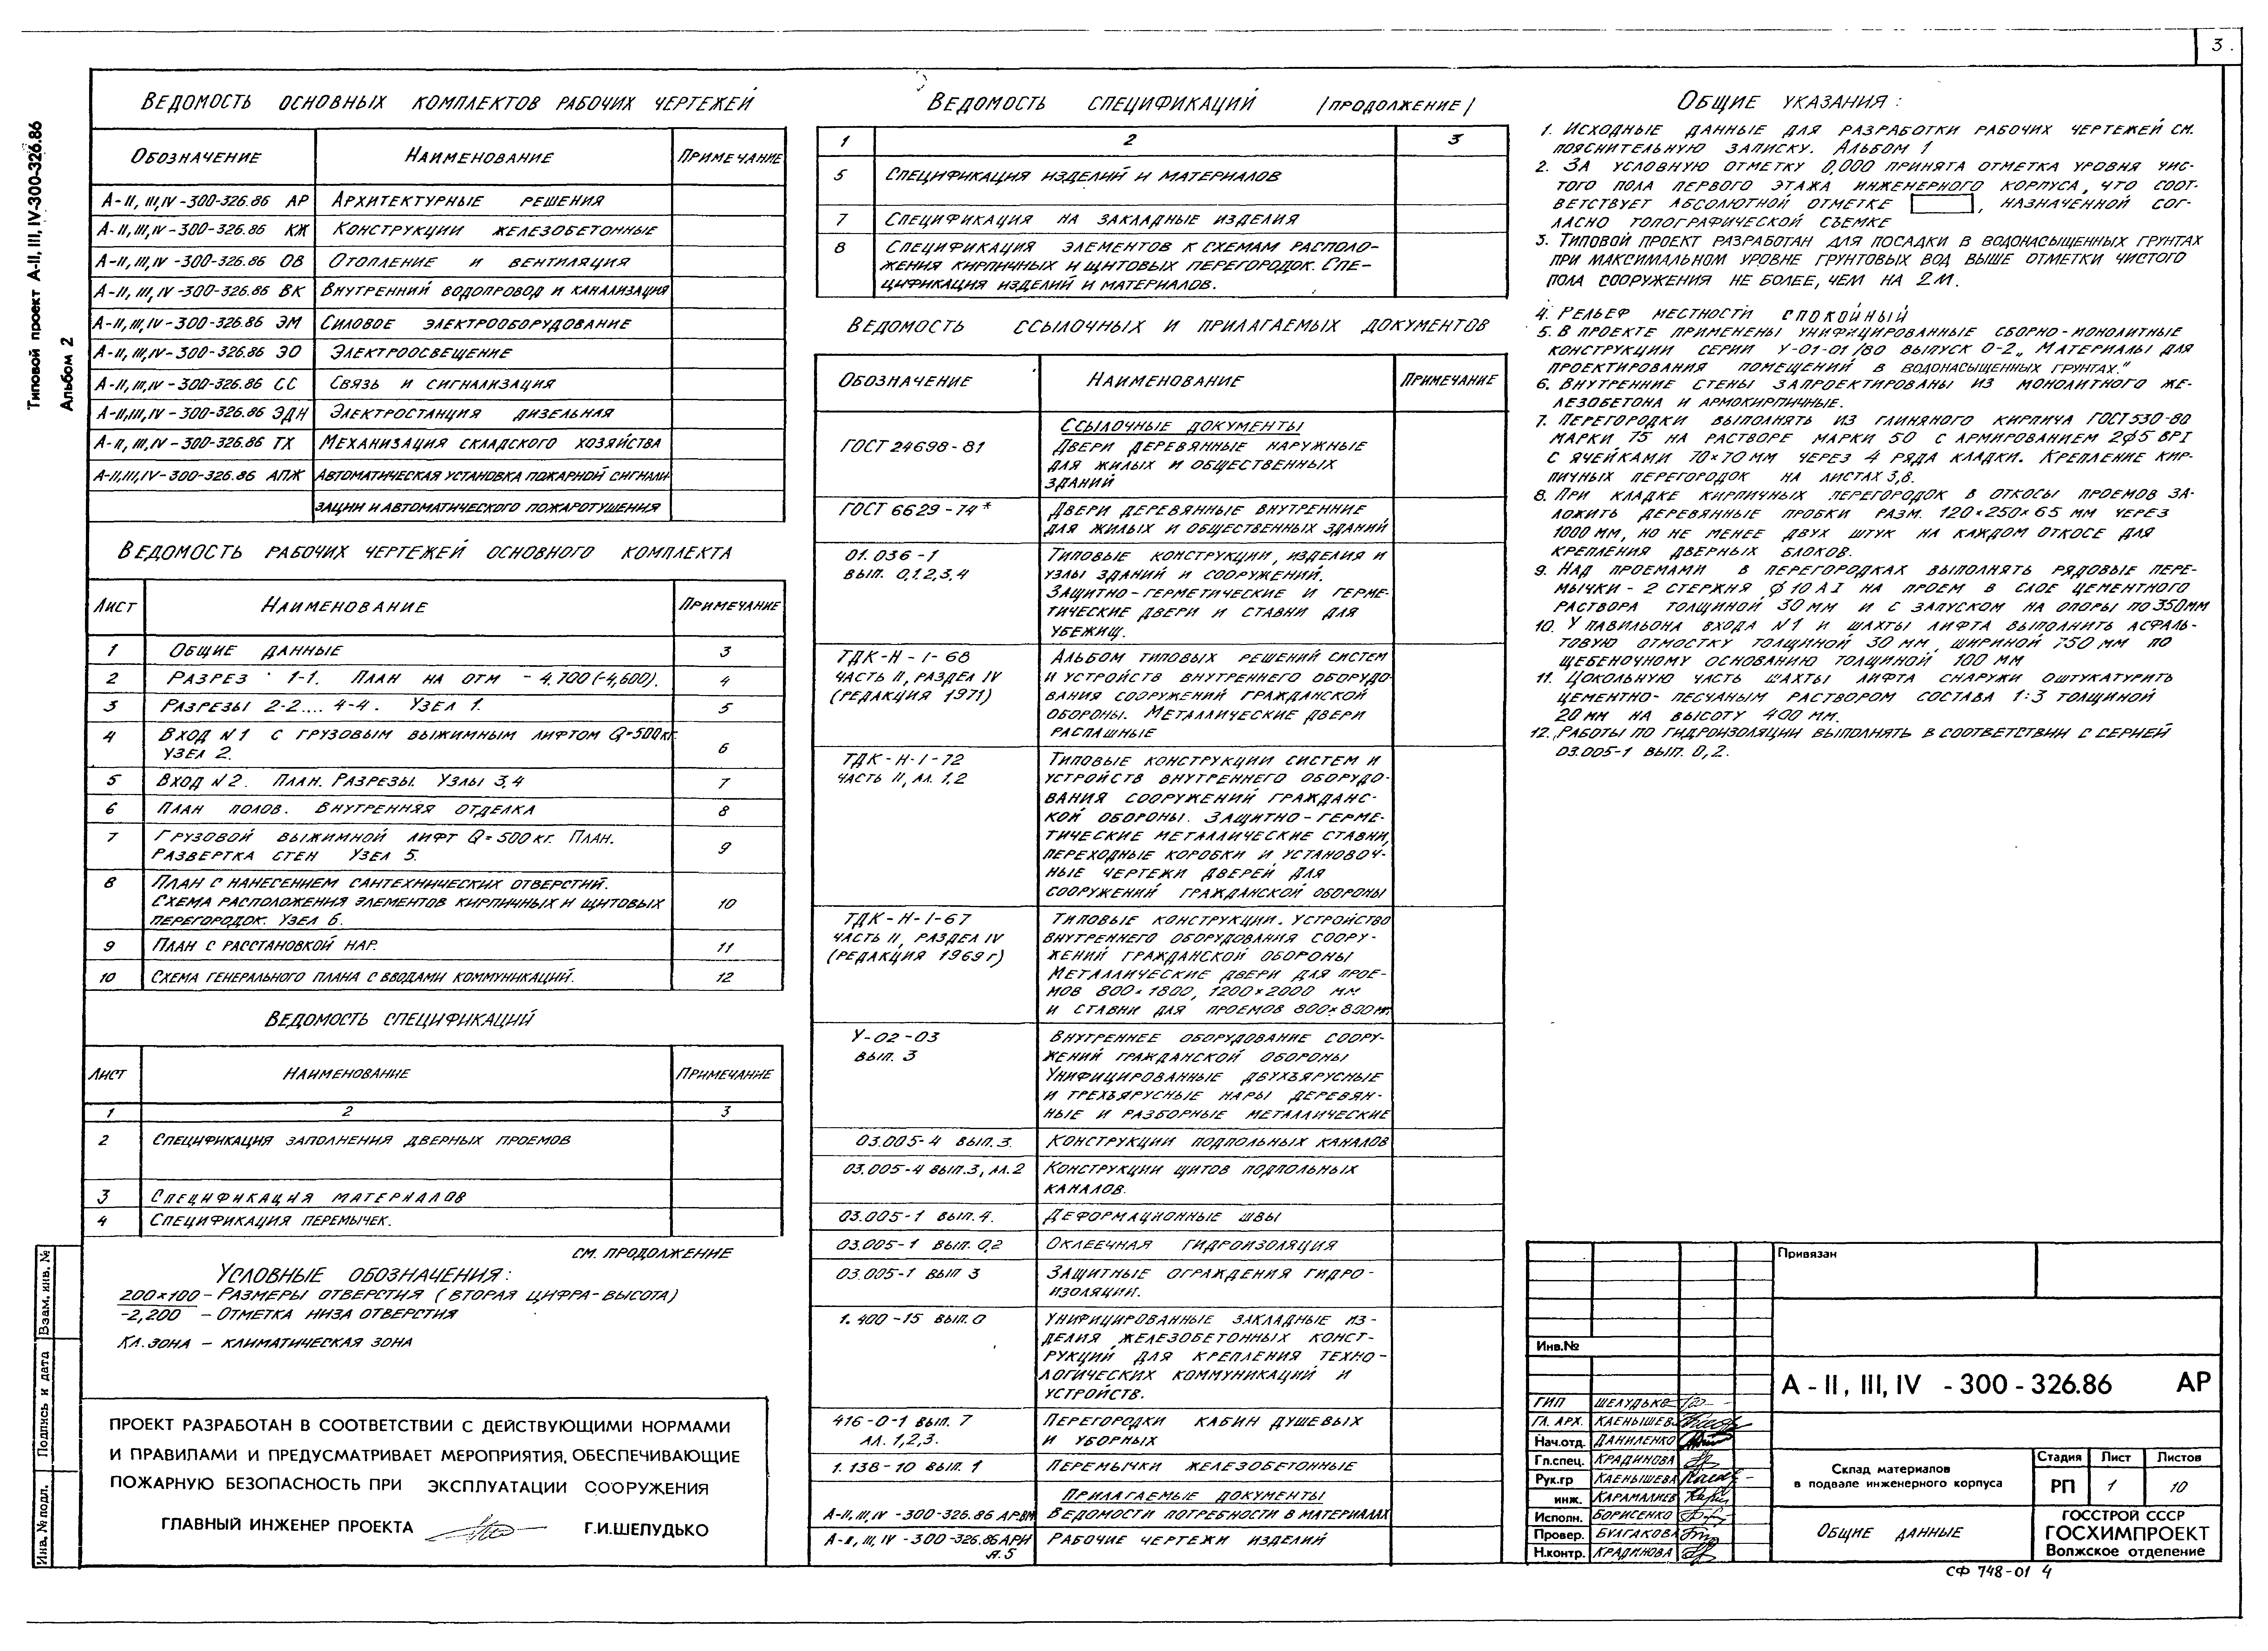 3.
Типовой проект А-II, III, IV-300-326.86
Альбом 2
Ведомость основных комплектов рабочих чертежей
Обозначение Наименование Примечание
А-II, III, IV-300-326.86 АР Архитектурные решения
А-II, III, IV-300-326.86 КЖ Конструкции железобетонные
А-II, III, IV-300-326.86 ОВ Отопление и вентиляция
А-II, III, IV-300-326.86 ВК Внутренний водопровод и канализация
А-II, III, IV-300-326.86 ЭМ Силовое электрооборудование
А-II, III, IV-300-326.86 ЭО Электроосвещение
А-II, III, IV-300-326.86 СС Связь и сигнализация
А-II, III, IV-300-326.86 ЭДН Электростанция дизельная
А-II, III, IV-300-326.86 ТХ Механизация складского хозяйства
А-II, III, IV-300-326.86 АПЖ Автоматическая установка пожарной сигнали
зации и автоматического пожаротушения
Ведомость рабочих чертежей основного комплекта
Лист Наименование Примечание
1 Общие данные 3
2 Разрез 1-1. План на отм -4.700(-4,600). 4
3 Разрезы 2-2.... 4-4. Узел 1. 5
4 Вход №1 с грузовым выжимным лифтом Q=500кг.
Узел 2. 6
5 Вход №2. План. Разрезы. Узлы 3,4 7
6 План полов. Внутренняя отделка 8
7 Грузовой выжимной лифт Q=500кг. План.
Развертка стен Узел 5. 9
8 План с нанесением сантехнических отверстий.
Схема расположения элементов кирпичных и щитовых 10
перегородок. Узел 6.
9 План с расстановкой нар. 11
10 Схема генерального плана с вводами коммуникаций. 12
Ведомость спецификаций
Лист Наименование Примечание
1 2 3
2 Спецификация заполнения дверных проемов
3 Спецификация материалов
4 Спецификация перемычек.
см. продолжение
Условные обозначения:
200×100 – Размеры отверстия (вторая цифра-высота)
-2,200 – Отметка низа отверстия
Кл. зона – климатическая зона
ПРОЕКТ РАЗРАБОТАН В СООТВЕТСТВИИ С ДЕЙСТВУЮЩИМИ НОРМАМИ
И ПРАВИЛАМИ И ПРЕДУСМАТРИВАЕТ МЕРОПРИЯТИЯ, ОБЕСПЕЧИВАЮЩИЕ
ПОЖАРНУЮ БЕЗОПАСНОСТЬ ПРИ ЭКСПЛУАТАЦИИ СООРУЖЕНИЯ
ГЛАВНЫЙ ИНЖЕНЕР ПРОЕКТА Г.И.ШЕЛУДЬКО
Инв. № подл. Подпись и дата Взам. инв. №
Ведомость спецификаций /продолжение/
1 2 3
5 Спецификация изделий и материалов
7 Спецификация на закладные изделия
8 Спецификация элементов к схемам располо-
жения кирпичных и щитовых перегородок. Спе-
цификация изделий и материалов.
Ведомость ссылочных и прилагаемых документов
Обозначение Наименование Примечание
Ссылочные документы
ГОСТ 24698-81 Двери деревянные наружные
для жилых и общественных
зданий
ГОСТ 6629-74* Двери деревянные внутренние
для жилых и общественных зданий
01.036-1 Типовые конструкции, изделия и
вып. 0,1,2,3,4 узлы зданий и сооружений.
Защитно-герметические и герме-
тические двери и ставни для
убежищ.
ТДК-Н-1-68 Альбом типовых решений систем
часть II, раздел IV и устройств внутреннего оборудо
(редакция 1971) вания сооружений гражданской
обороны. Металлические двери
распашные
ТДК-Н-1-72 Типовые конструкции систем и
часть II, ал. 1,2 устройств внутреннего оборудо-
вания сооружений гражданс-
кой обороны. Защитно-герме-
тические металлические ставни,
переходные коробки и установоч-
ные чертежи дверей для
сооружений гражданской обороны
ТДК-Н-1-67 Типовые конструкции. Устройство
часть II, раздел IV внутреннего оборудования соору-
(редакция 1969г) жений гражданской обороны
Металлические двери для прое-
мов 800×1800, 1200×2000 мм
и ставни для проемов 800×800мм.
У-02-03 Внутреннее оборудование соору-
вып. 3 жений гражданской обороны
Унифицированные двухъярусные
и трехъярусные нары деревян-
ные и разборные металлические
03.005-4 вып.3. Конструкции подпольных каналов
03.005-4 вып.3, ал.2 Конструкции щитов подпольных
каналов.
03.005-1 вып.4. Деформационные швы
03.005-1 вып. 0,2 Оклеечная гидроизоляция
03.005-1 вып 3 Защитные ограждения гидро-
изоляции.
1.400-15 вып.0 Унифицированные закладные из-
делия железобетонных конст-
рукций для крепления техно-
логических коммуникаций и
устройств.
416-0-1 вып. 7 Перегородки кабин душевых
ал. 1,2,3. и уборных
1.138-10 вып. 1 Перемычки железобетонные
Прилагаемые документы
А-II, III, IV-300-326.86 АР.ВМ Ведомости потребности в материалах
А-II, III, IV-300-326.86 АРИ Рабочие чертежи изделий
л.5
Общие указания:
1. Исходные данные для разработки рабочих чертежей см.
пояснительную записку. Альбом 1
2. За условную отметку 0,000 принята отметка уровня чис-
того пола первого этажа инженерного корпуса, что соот-
ветствует абсолютной отметке , назначенной сог-
ласно топографической съемке
3. Типовой проект разработан для посадки в водонасыщенных грунтах
при максимальном уровне грунтовых вод выше отметки чистого
пола сооружения не более, чем на 2м.
4. Рельеф местности спокойный
5. В проекте применены унифицированные сборно-монолитные
конструкции серии У-01-01/80 выпуск 0-2 „Материалы для
проектирования помещений в водонасыщенных грунтах."
6. Внутренние стены запроектированы из монолитного же-
лезобетона и армокирпичные.
7. Перегородки выполнять из глиняного кирпича ГОСТ 530-80
марки 75 на растворе марки 50 с армированием 2ф5 ВРI
с ячейками 70×70мм через 4 ряда кладки. Крепление кир-
пичных перегородок на листах 3,8.
8. При кладке кирпичных перегородок в откосы проемов за-
ложить деревянные пробки разм. 120×250×65 мм через
1000мм, но не менее двух штук на каждом откосе для
крепления дверных блоков.
9. Над проемами в перегородках выполнять рядовые пере-
мычки - 2 стержня ф10 АI на проем в слое цементного
раствора толщиной 30мм и с запуском на опоры по 350мм
10. У павильона входа №1 и шахты лифта выполнить асфаль-
товую отмостку толщиной 30 мм, шириной 750 мм по
щебеночному основанию толщиной 100 мм
11. Цокольную часть шахты лифта снаружи оштукатурить
цементно-песчаным раствором состава 1:3 толщиной
20мм на высоту 400 мм.
12. Работы по гидроизоляции выполнять в соответствии с серией
03.005-1 вып. 0,2.
Привязан
Инв.№
А-II, III, IV -300-326.86 АР
ГИП Шелудько
Гл. арх. Каенышев
Нач.отд. Даниленко
Гл.спец. Крадинова
Рук.гр Каенышева
инж. Карамалиев
Исполн. Борисенко
Провер. Булгакова
Н.контр. Крадинова
Склад материалов
в подвале инженерного корпуса
Стадия Лист Листов
РП 1 10
Общие данные
ГОССТРОЙ СССР
ГОСХИМПРОЕКТ
Волжское отделение
СФ 748-01 4